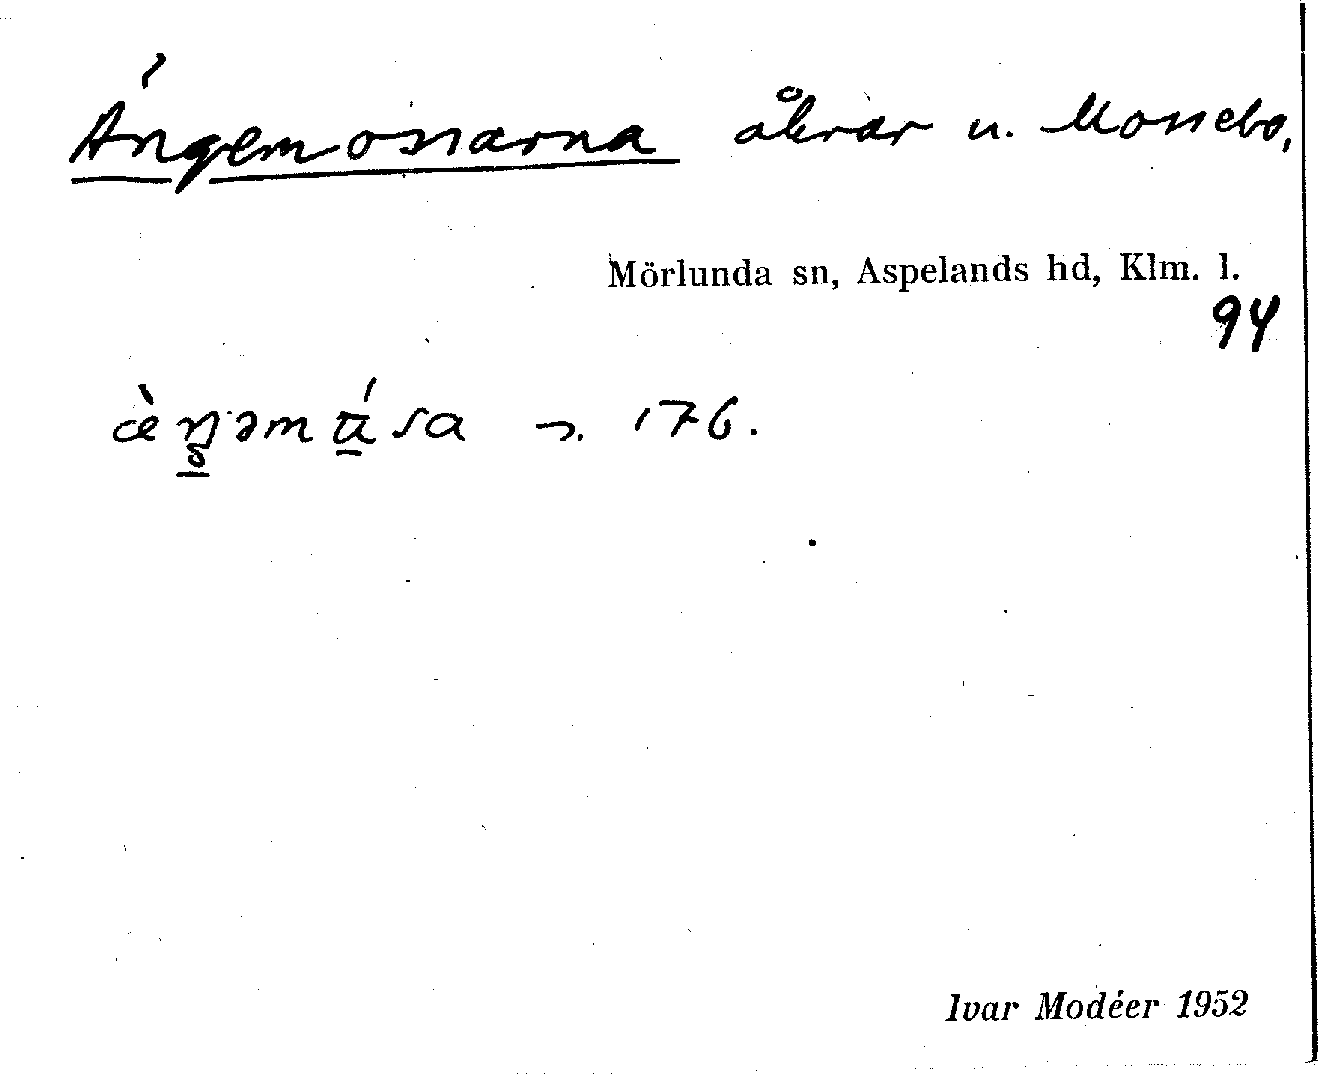 Ängemossarna åkrar u. Mossebo,
Mörlunda sn, Aspelands hd, Klm. l.
94
176.
Ivar Modéer 1952